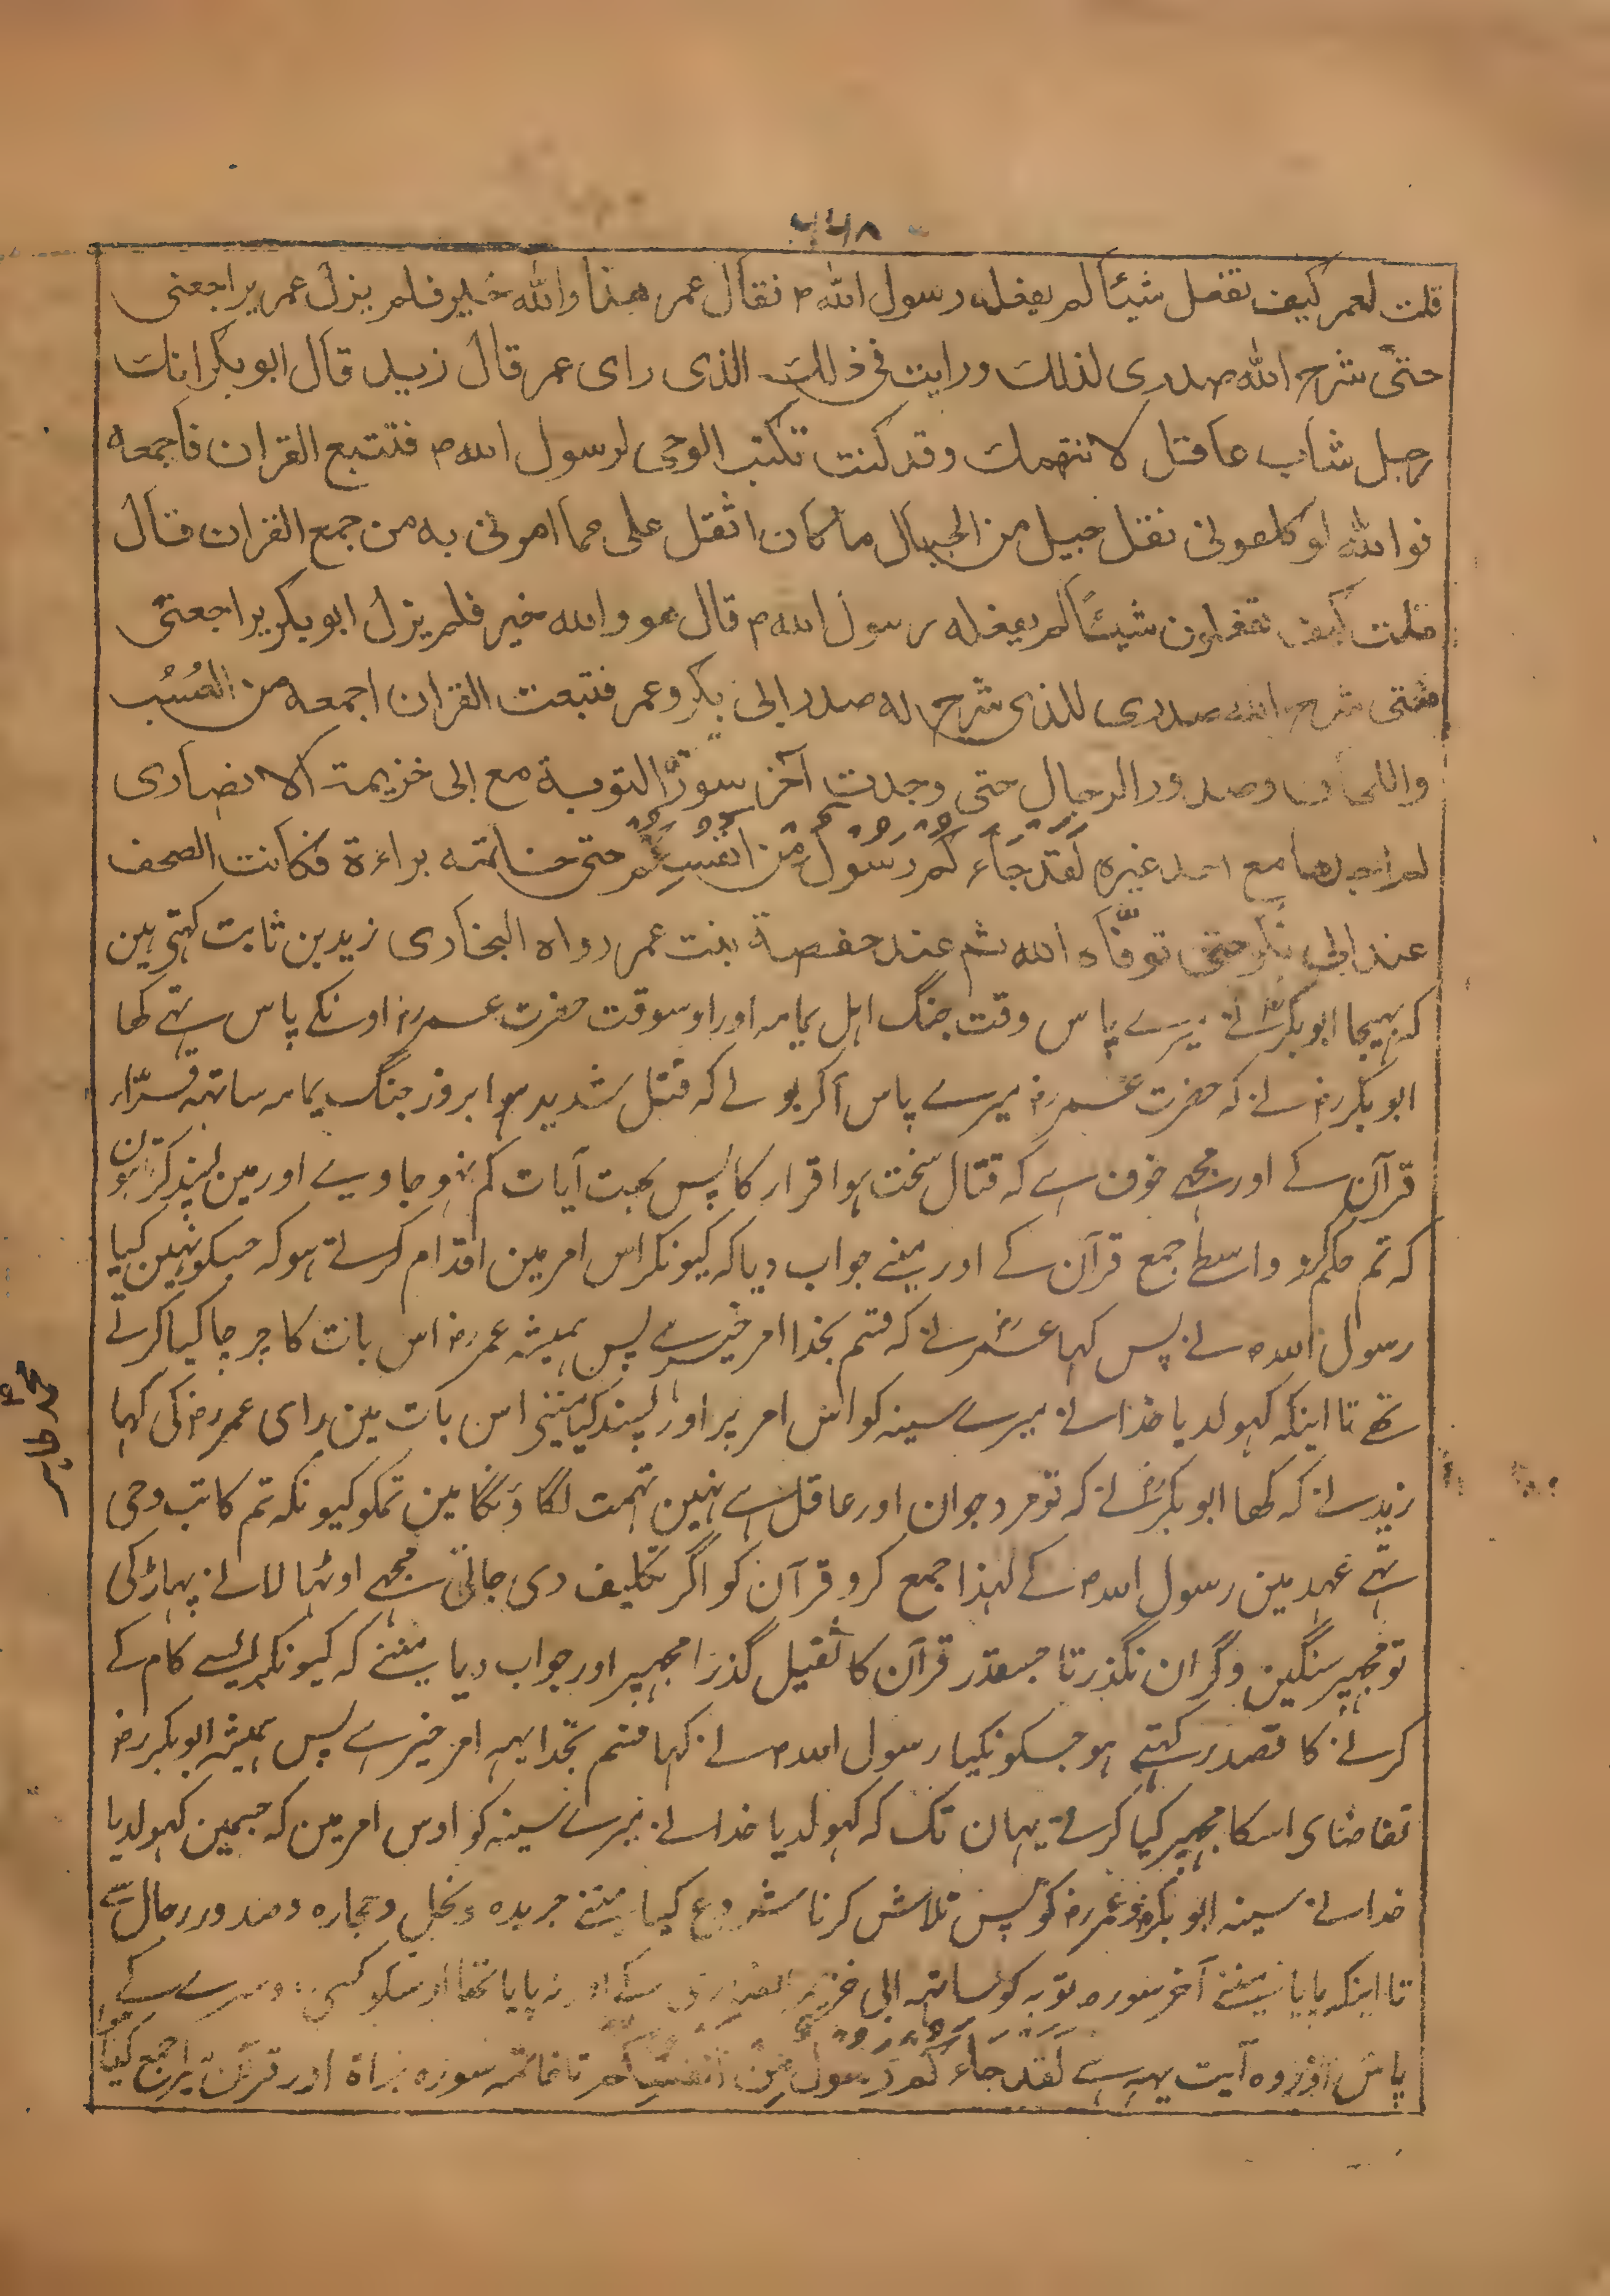 ۶۶۸
قلت لعمر كيف نفعل شيئا لم يفعله رسول الله ؐ فقال عمر هذا والله خير فلم يزل عمر يراجعني
حتى شرح الله صدری لذلك ورايت فی ذلك الذی رای عمر قال زيد قال ابوبكر انك
رجل شاب عاقل لا نتهمك وقد كنت تكتب الوحی لرسول الله ؐ فتتبع القران فاجمعه
فوالله لو كلفونی نقل جبل من الجبال ما كان اثقل علی مما امرنی به من جمع القران قال
قلت كيف تفعلون شيئاً لم يفعله رسول الله ؐ قال هو والله خير فلم يزل ابوبكر يراجعنی
حتی شرح الله صدری للذی شرح له صدر ابی بكر وعمر فتبعت القران اجمعه من العُسُب
واللخاف وصدور الرجال حتی وجدت آخر سورة التوبة مع ابی خزيمة الانصاری
لم اجدها مع احد غيره لَقَد جَاءَكُم رَسُولٌ مِن اَنفُسِكُم حتی خاتمة براءة فكانت الصحف
عند ابی بكر حتی توفّاه الله ثم عند حفصة بنت عمر رواه البخاری زید بن ثابت کہتی ہین
کہ بہیجا ابوبکرؓ نے میرے پاس وقت جنگ اہل یمامہ اور اوسوقت حضرت عمررض اونکے پاس تہے کہا
ابوبکررض نے کہ حضرت عمررض میرے پاس آکر بولے کہ قتل شدید ہوا بروز جنگ یمامہ ساتہہ قرّاء
قرآن کے اور مجہے خوف ہے کہ قتال سخت ہوا قرار کا پس بہت آیات کم ہو جاوے اور مین پسند کرتا ہون
کہ تم حکم کرو واسطے جمع قرآن کے اور مینے جواب دیا کہ کیونکر اس امر مین اقدام کرتے ہو کہ جسکو نہین کیا
رسول اللہ ؐ نے پس کہا عمررض نے کہ قسم بخدا امر خیر ہے پس ہمیشہ عمررض اس بات کا چرچا کیا کرتے
تہے تا اینکہ کہولدیا خدا نے میرے سینہ کو اس امر پر اور پسند کیا مینی اس بات مین رای عمررض کی کہا
زید نے کہ کہا ابوبکررض نے کہ تو مرد جوان اور عاقل ہے نہین تہمت لگاؤنگا مین تمکو کیونکہ تم کاتب وحی
تہے عہد مین رسول اللہ ؐ کے لہذا جمع کرو قرآن کو اگر تکلیف دی جاتی مجہے اوٹہا لانے پہاڑ کی
تو مجہپر سنگین و گران نگذرتا جسقدر قرآن کا ثقیل گذرا مجہپر اور جواب دیا مینے کہ کیونکر ایسے کام کے
کرنے کا قصد رکہتے ہو جسکو نکیا رسول اللہ ؐ نے کہا قسم بخدا یہہ امر خیر ہے پس ہمیشہ ابوبکررض
تقاضای اسکا مجہپر کیا کرتے یہان تک کہ کہولدیا خدا نے میرے سینہ کو اوس امر مین کہ جسمین کہولدیا
خدا نے سینہ ابوبکررض و عمررض کو پس تلاش کرنا شروع کیا مینے جریدہ نخل و حجارہ و صدور رجال سے
تا اینکہ پایا مینے آخر سورہ توبہ کو ساتہہ ابی خزیمہ انصاری کے اور نہ پایا تہا اوسکو کسی دوسرے کے
پاس اور وہ آیت یہہ ہے لَقَد جَاءَكُم رَسُولٌ مِن اَنفُسِكُم تا خاتمہ سورہ براۃ اور قرآن جمع کیا ہوا
محمد طاہر